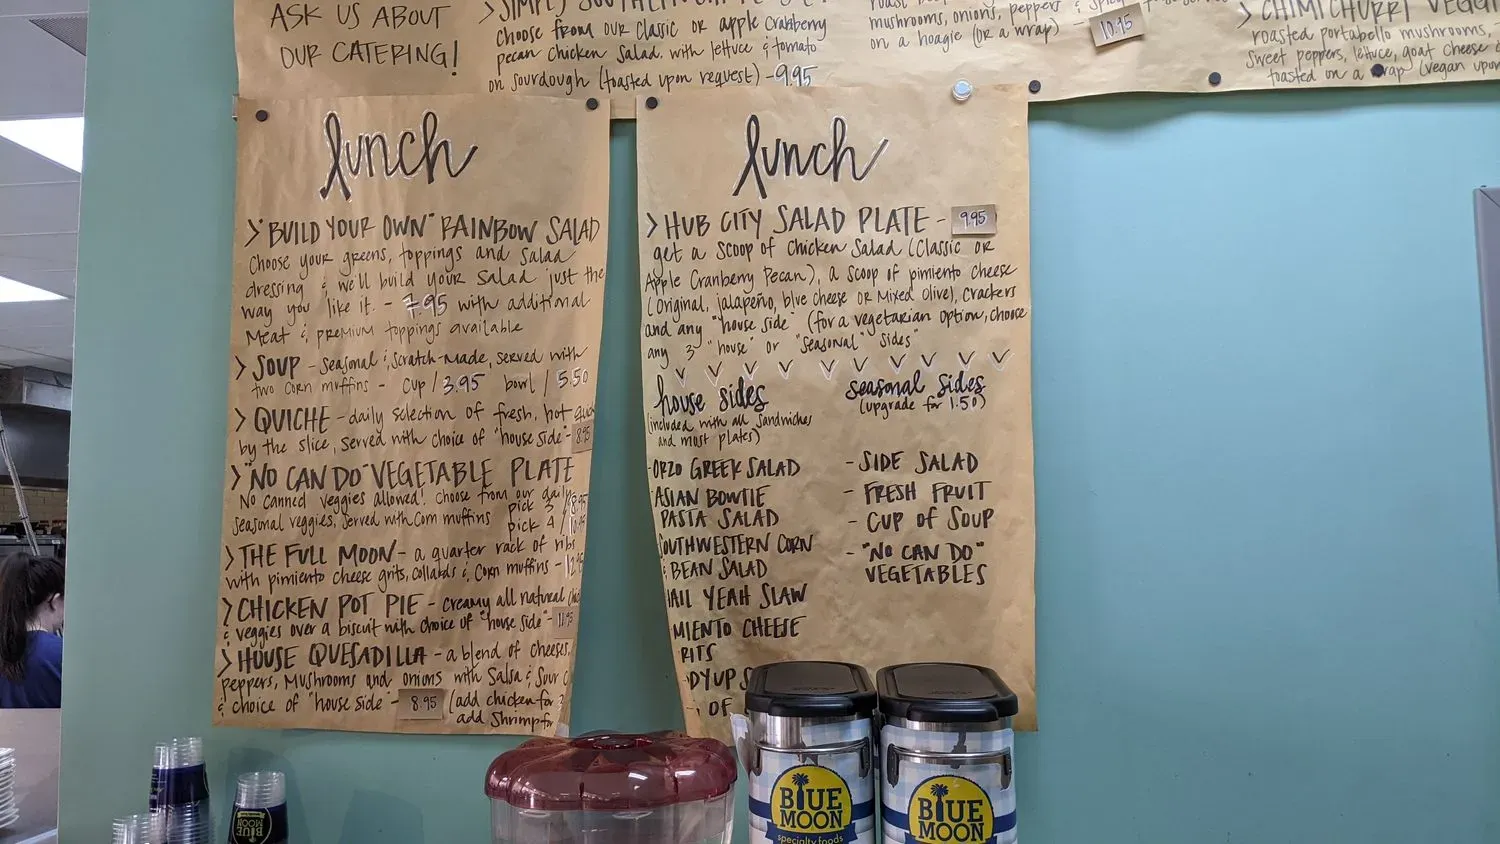 ASK US ABOUT
OUR CATERING!
choose from our classic or apple cranberry
pecan chicken salad. with lettuce & tomato
on sourdough (toasted upon request) - 9.95
mushrooms, onions, peppers &
on a hoagie (or a wrap) 10.95
> CHIMICHURRI
roasted portabello mushrooms,
sweet peppers, lettuce, goat cheese
toasted on a wrap (vegan upon
lunch
> "BUILD YOUR OWN" RAINBOW SALAD
Choose your greens, toppings and salad
dressing & we'll build your salad just the
way you like it. - 7.95 with additional
Meat & premium toppings available
> SOUP - seasonal & scratch-made, served with
two corn muffins - cup / 3.95 bowl / 5.50
> QUICHE - daily selection of fresh, hot
by the slice, served with choice of "house side" - 8.95
> "NO CAN DO" VEGETABLE PLATE
No canned veggies allowed! choose from our daily
pick 3 /
seasonal veggies, served with corn muffins
pick 4 /
> THE FULL MOON - a quarter rack of ribs
with pimiento cheese grits, collards & corn muffins -
> CHICKEN POT PIE - creamy all natural
& veggies over a biscuit with choice of "house side" - 11.95
> HOUSE QUESADILLA - a blend of cheeses,
peppers, Mushrooms and onions with Salsa & Sour
& choice of "house side" - 8.95 (add chicken for
add Shrimp for
lunch
> HUB CITY SALAD PLATE - 9.95
get a scoop of chicken salad (Classic or
Apple Cranberry Pecan), a scoop of pimiento cheese
(original, jalapeño, blue cheese or Mixed Olive), crackers
and any "house side" (for a vegetarian option, choose
any 3 "house" or "seasonal" sides
house sides
(included with all sandwiches
and most plates)
-ORZO GREEK SALAD
ASIAN BOWTIE
PASTA SALAD
SOUTHWESTERN CORN
& BEAN SALAD
YEAH SLAW
CHEESE
seasonal sides
(upgrade for 1.50)
- SIDE SALAD
- FRESH FRUIT
- CUP OF SOUP
- "NO CAN DO"
VEGETABLES
BLUE
MOON
specialty foods
BLUE
MOON
BLUE
MOON